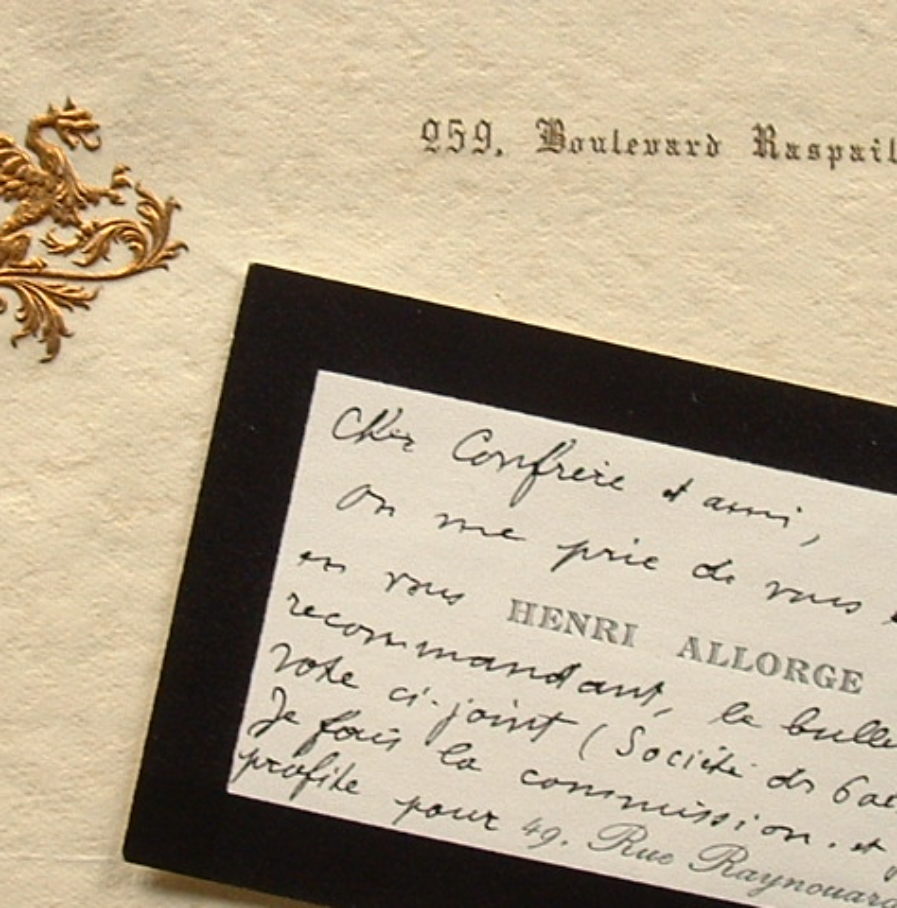 259, Boulevard Raspail
Cher Confrère et ami,
On me prie de vous
en vous
HENRI ALLORGE
recommandant, le bulle
vote ci-joint (Société des Gae
Je fais la commission. et
profite pour
49, Rue Raynouard